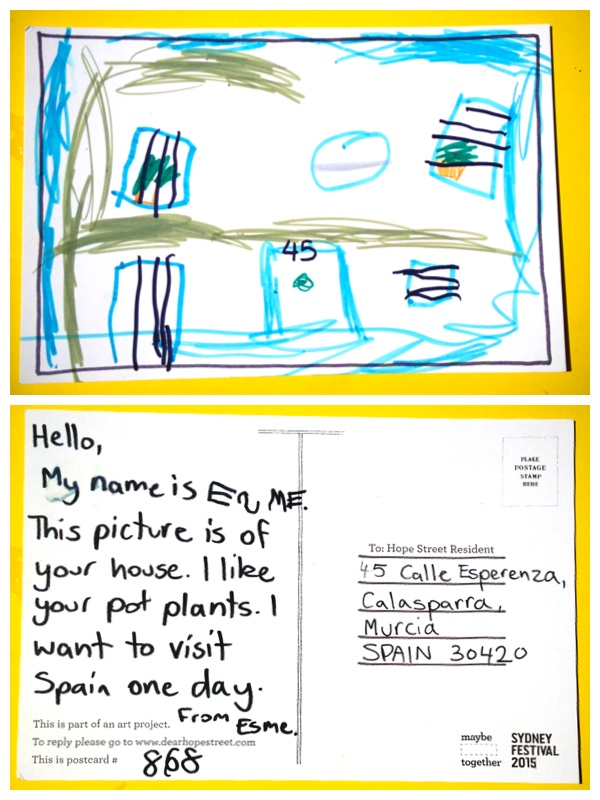 45
Hello,
My name is ESME.
This picture is of
your house. I like
your pot plants. I
want to visit
Spain one day.
From Esme.
This is part of an art project.
To reply please go to www.dearhopestreet.com
This is postcard # 868
PLACE
POSTAGE
STAMP
HERE
To: Hope Street Resident
45 Calle Esperenza,
Calasparra,
Murcia
SPAIN 30420
maybe
together
SYDNEY
FESTIVAL
2015